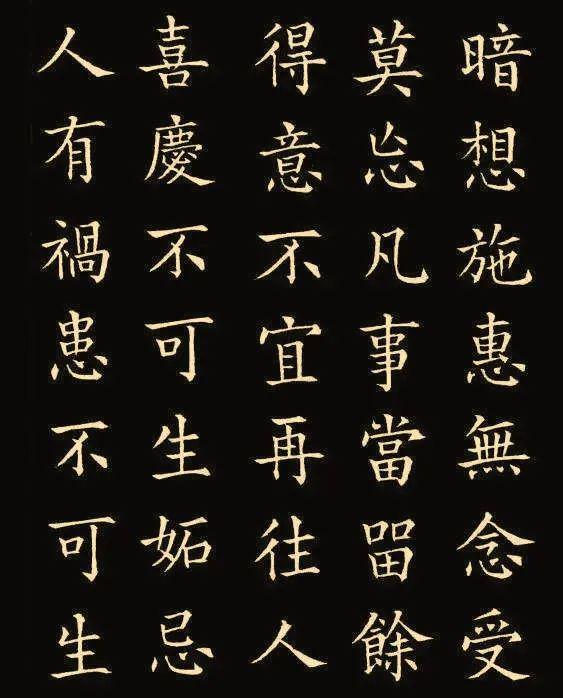 暗想施惠無念受
莫㤀凡事當畱餘
得意不宜再往人
喜慶不可生妬忌
人有禍患不可生